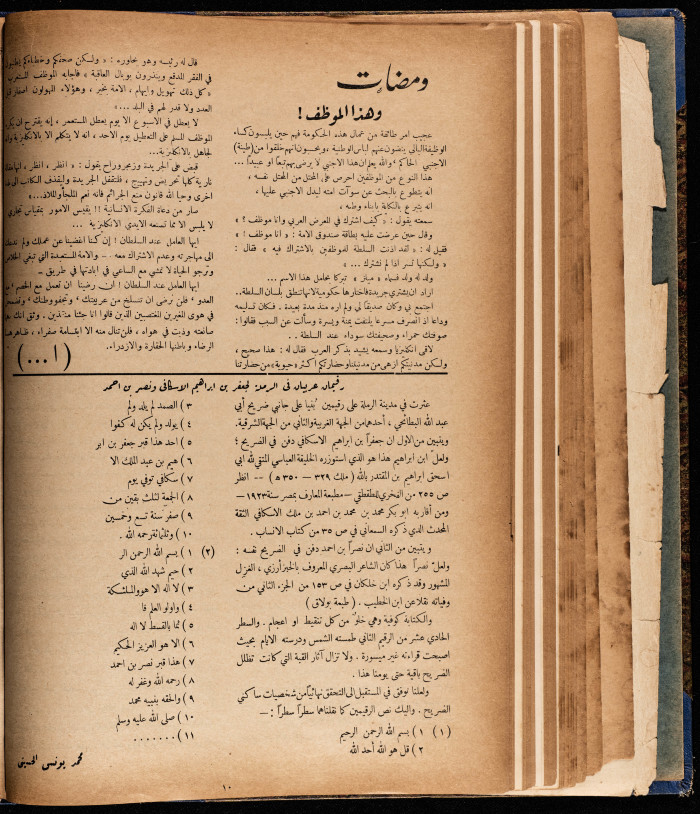 ومضات
وهذا الموظف !
عجيب امر طائفة من عمال هذه الحكومة فهم حين يلبسون كساء
الوظيفة البالي ينضون عنهم لباس الوطنية ، ويحسبون انهم خلقوا من (طينة)
الاجنبي الحاكم ‹ والله يعلم ان هذا الاجنبي لا يرضى بهم تبعاً او عبيداً ...
هذا النوع من الموظفين احرص على المحتل من المحتل نفسه ،
انه يتطوع بالبحث عن سوآت امته ليدل الاجنبي عليها ،
انه يتبرع بالنكاية بابناء وطنه ،
سمعته يقول : « كيف اشترك في المعرض العربي وانا موظف ؟ »
وقال حين عرضت عليه بطاقة صندوق الامة : « وانا موظف ! »
فقيل له : « لقد اذنت السلطة للموظفين بالاشتراك فيه » فقال :
« ولكنها تسر اذا لم نشترك ... »
ولد له ولد فسماه تبركا بحامل هذا الاسم ...
اراد ان يشتري جريدة فاختارها حكومية لانها تنطق بلسان السلطة..
اجتمع لي وكان صديقاً لي ولم اره منذ مدة بعيدة . فكان تسليمه
وداعا اذ انصرف مسرعا يلتفت يمنة ويسرة وسألت عن السبب فقالوا :
صوفتك حمراء وصحيفتك سوداء عند السلطة ..
لاقى انكليزيا وسمعه يشيد بذكر العرب فقال له : هذا صحيح ،
ولكن مدنيتكم ازهى من مدنيتنا وحضارتكم اكثر «حيوية» من حضارتنا
قال له رئيسه وهو يحاوره : « ولكن صحفكم وخطباءكم
في الفقر المدقع وينذرون بوبال العاقبة » فاجابه الموظف
« كل ذلك تهويل وايهام ، الامة بخير ، وهؤلاء المهولون
العدد ولا قدر لهم في البلد ... »
لا يعطل في الاسبوع الا يوم يعطل المستعمر ، إنه يقترح ان
الموظف المسلم على التعطيل يوم الاحد ، انه لا يتكلم الا بالانكليزية
لجاهل بالانكليزية...
قبض على الجريدة وزمجر وراح يقول : « انظر ، انظر ،
نارية كلها تحريض وتهييج ، فلتقفل الجريدة وليقذف الكاتب
اخرى وحيا الله قانون منع الجرائم فانه نعم الملجأ والملاذ..»
صار من دعاة الفكرة الانسانية !! يقيس الامور بمقياس تجاري
لا يلبس الا مما تصنعه الايدي الانكليزية ...
ايها العامل عند السلطان ! إن كنا اغضينا عن عملك ولم
الى مهاجرته وعدم الاشتراك معه .. والامة المستعبدة التي تبغي
وترجو الحياة لا تمشي مع الساعي في ابادتها في طريق ..
ايها العامل عند السلطان ! ان رضينا ان تعمل مع الخصم
العدو ‹ فلن نرضى ان تنسلخ من عربيتك
في هوى المغيرين المغتصبين الذين قالوا انا جئنا منقذين . وثق انك
صانعته وذبت في هواه ، فلن تنال منه الا ابتسامة صفراء ، ظاهرها
الرضاء وباطنها الحقارة والازدراء.
( ا ... )
رقيمان عربيان في الرملة لجعفر بن ابراهيم الاسكافي ونصر بن احمد
عثرت في مدينة الرملة على رقيمين بُنيا على جانبي ضريح أبي
عبد الله البطائحي ، أحدهما من الجهة الغربية والثاني من الجهة الشرقية.
ويتبين من الاول ان جعفراً بن ابراهيم الاسكافي دفن في الضريح ؛
ولعل ابن ابراهيم هذا هو الذي استوزره الخليفة العباسي المتقي لله ابي
اسحق ابراهيم بن المقتدر بالله ( ملك ٣٢٩ – ٣٥٠ ھ ) -- انظر
ص ٢٥٥ من الفخري للطقطقي – مطبعة المعارف بمصر سنة ١٩٢٣–
ومن أقاربه ابو بكر محمد بن محمد بن احمد بن ملك الاسكافي الثقة
المحدث الذي ذكره السمعاني في ص ٣٥ من كتاب الانساب .
ويتبين من الثاني ان نصراً بن احمد دفن في الضريح نفسه :
ولعل نصراً هذا كان الشاعر البصري المعروف بالخبز أرزي ، الغزل
المشهور وقد ذكره ابن خلكان في ص ١٥٣ من الجزء الثاني من
وفياته نقلا عن ابن الخطيب . ( طبعة بولاق )
والكتابة كوفية وهي خلو من كل تنقيط او اعجام . والسطر
الحادي عشر من الرقيم الثاني طمسته الشمس ودرسته الايام بحيث
اصبحت قراءته غير ميسورة . ولا تزال آثار القبة التي كانت تظلل
الضريح باقية حتى يومنا هذا .
ولعلنا نوفق في المستقبل الى التحقق نهائياً من شخصيات ساكني
الضريح . واليك نص الرقيمين كما نقلناهما سطراً سطراً : –
(١) ١ ) بسم الله الرحمن الرحيم
٢ ) قل هو الله أحد الله
٣ ) الصمد لم يلد ولم
٤ ) يولد ولم يكن له كفوا
٥ ) احد هذا قبر جعفر بن ابر
٦ ) هيم بن عبد الملك الا
٧ ) سكافي توفي يوم
٨ ) الجمعة لثلث بقين من
٩ ) صفر سنة تسع وخمسين
١٠ ) وثلثمائة رحمه الله .
(٢) ١ ) بسم الله الرحمن الر
٢ ) حيم شهد الله الذي
٣ ) لا اله الا هو والملئكة
٤ ) واولو العلم قا
٥ ) ئما بالقسط لا اله
٦ ) الا هو العزيز الحكيم
٧ ) هذا قبر نصر بن احمد
٨ ) رحمه الله وغفر له
٩ ) والحقه بنبيه محمد
١٠ ) صلى الله عليه وسلم
١١ ) . . . . . . .
محمد يونس الحسيني
١٠